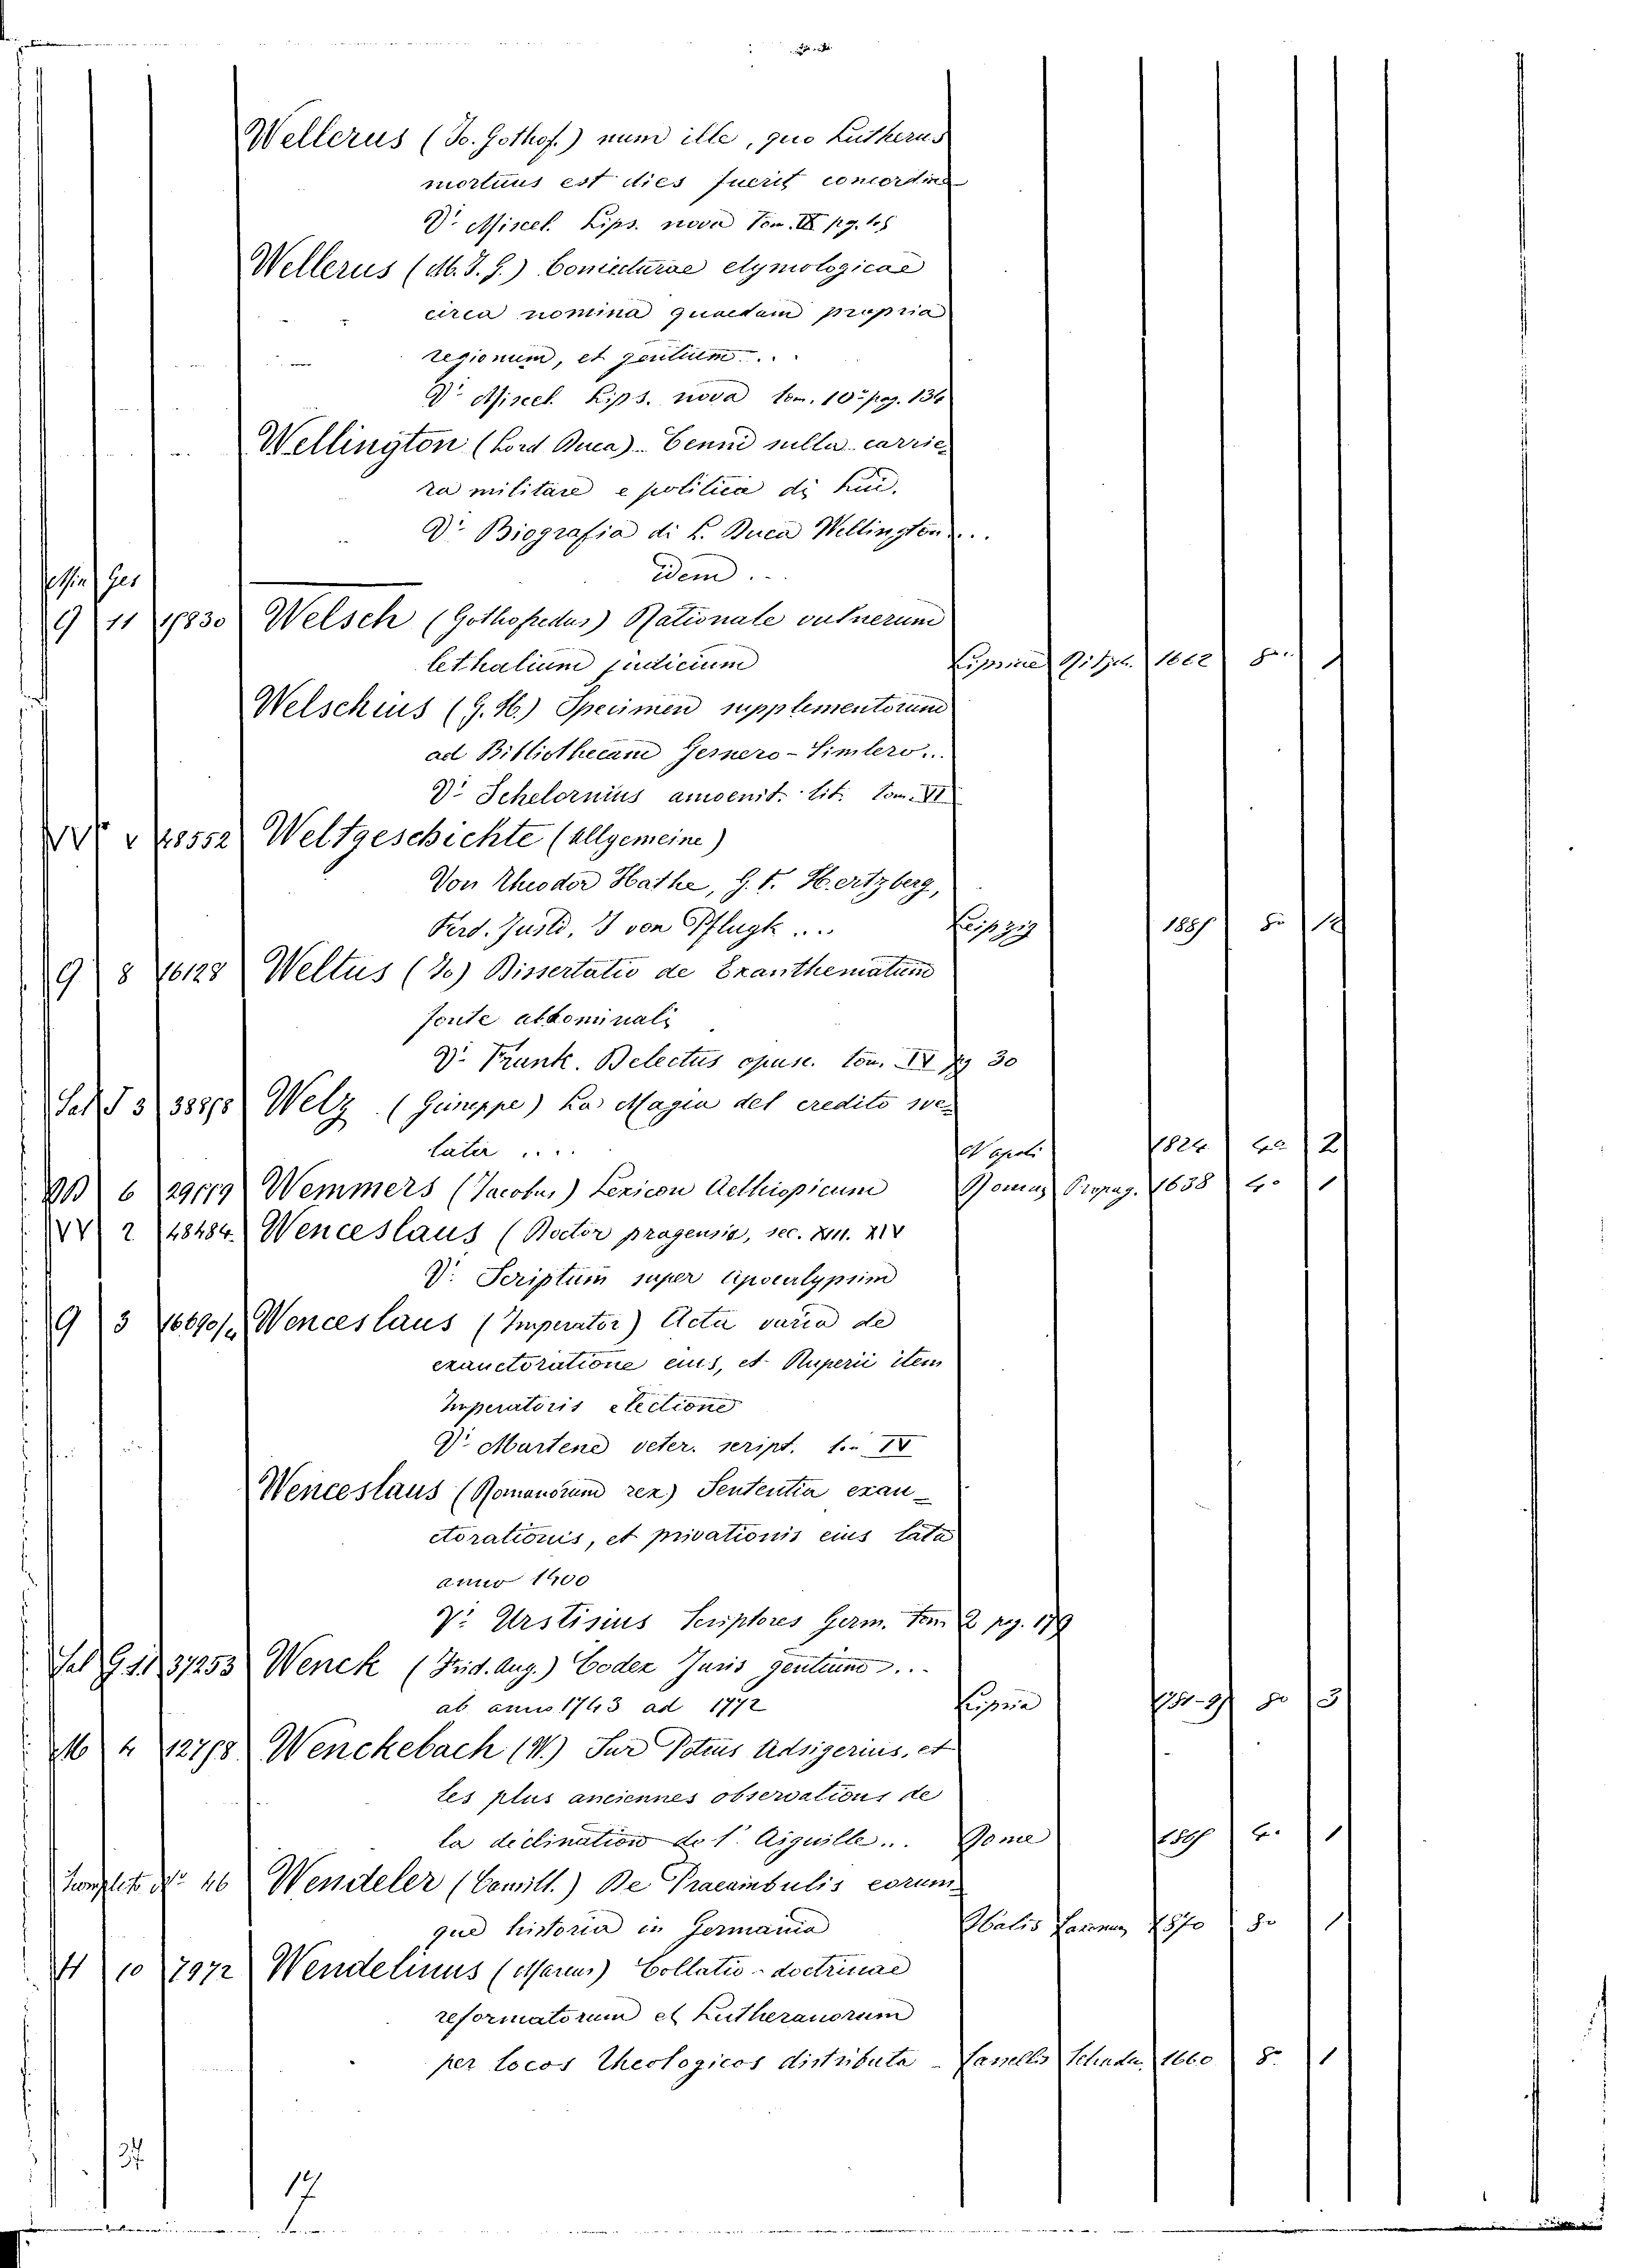 Wellerus (Jo. Gothof.) num ille, quo Lutherus
mortuus est dies fuerit concordiae
Vi Miscel. Lips. nova Tom. IX pg.
Wellerus (M. J. G.) Coniecturae etymologicae
circa nomina quaedam propria
regionum, et gentium...
Vi Miscel. Lips. nova tom. 10 pag. 136
Wellington (Lord Duca) - Cenni sulla carrie-
ra militare e politica di lui.
Vi Biografia di L. Duca Wellington...
idem...
9 11 17830 Welsch (Gothofredus) Rationale vulnerum
lethalium judicium Lipsiae Ritzsch. 1662 8°. 1
Welschius (G. H.) Specimen supplementorum
ad Bibliothecam Gesnero-Simlero...
Vi Schelornius amoenit. lit. tom. VI
48552 Weltgeschichte (allgemeine)
Von Theodor Hathe, G. F. Hertzberg,
Ferd. Justi, J von Pflugk... Leipzig 1885 8° 12
9 8 16128 Weltus (Jo) Dissertatio de Exanthematum
fonte abdominali
Vi Frank. Delectus opusc. tom. IV pg 30
Sal J 3 38878 Welz (Giuseppe) La Magia del credito sve-
lata .... Napoli 1824 4° 2
BB 6 29119 Wemmers (Jacobus) Lexicon Aethiopicum Romae Propag. 1638 4° 1
VV 2 48484. Wenceslaus (Doctor pragensis, sec. XIII. XIV
V. Scriptum super Apocalypsim
9 3 16690/4 Wenceslaus (Imperator) Acta varia de
exauctoratione eius, et Ruperii item
Imperatoris electione
Vi Martene veter. script. t. IV
Wenceslaus (Romanorum rex) Sententia exau-
ctorationis, et privationis eius lata
anno 1400
Vi Urstisius Scriptores Germ. tom 2 pag. 179
Sal G. 11 37253 Wenck (Frid. Aug.) Codex Juris gentium...
ab anno 1743 ad 1772 Lipsia 8° 3
M 4 12778 Wenckebach (W.) Sur Petrus Adsigerius, et
les plus anciennes observations de
la déclination de l'Aiguille... Rome 4° 1
N° 46 Wendeler (Camill.) De Praeambulis eorum-
que historia in Germania Halis 1870 8° 1
H 10 7972 Wendelinus (Marcus) Collatio doctrinae
reformatorum et Lutheranorum
per locos Theologicos distributa - Casellis Schadew. 1660 8° 1
37
17